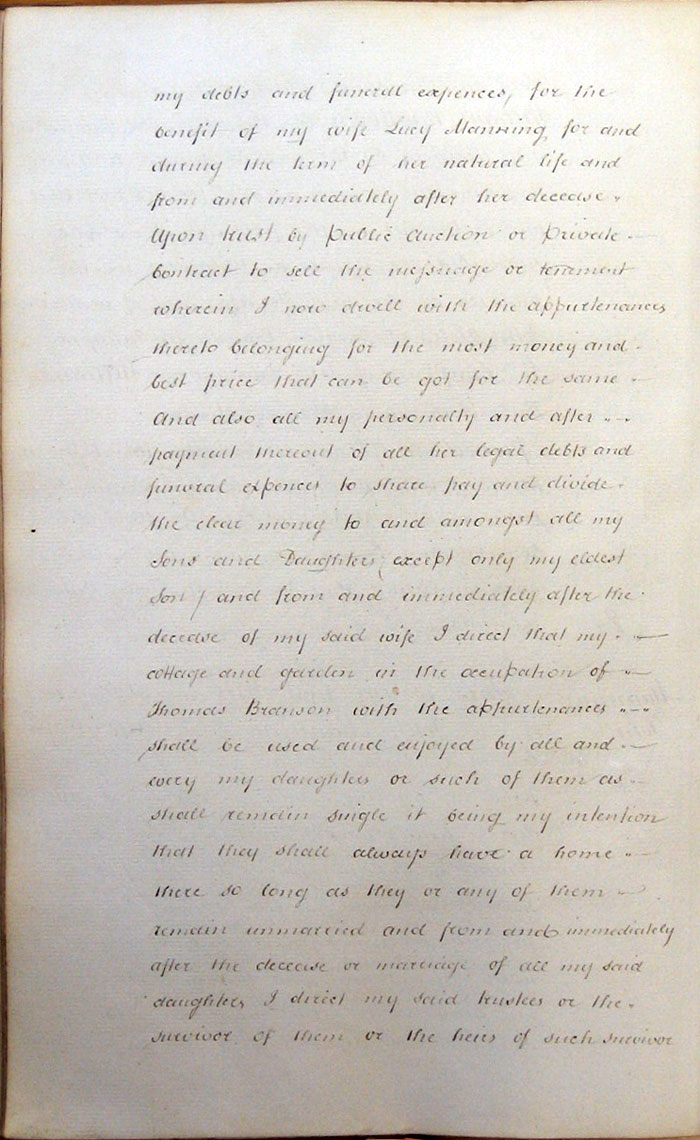 my debts and funeral expences, for the
benefit of my wife Lucy Manning for and
during the term of her natural life and
from and immediately after her decease
Upon trust by public auction or private
Contract to sell the messuage or tenement
wherein I now dwell with the appurtenances
thereto belonging for the most money and
best price that can be got for the same
And also all my personalty and after
payment thereout of all her legal debts and
funeral expences to share pay and divide
the clear money to and amongst all my
Sons and Daughters (except only my eldest
Son) and from and immediately after the
decease of my said wife I direct that my
cottage and garden in the occupation of
Thomas Branson with the appurtenances
shall be used and enjoyed by all and
every my daughters or such of them as
shall remain single it being my intention
that they shall always have a home
there so long as they or any of them
remain unmarried and from and immediately
after the decease or marriage of all my said
daughters I direct my said trustees or the
survivor of them or the heirs of such survivor